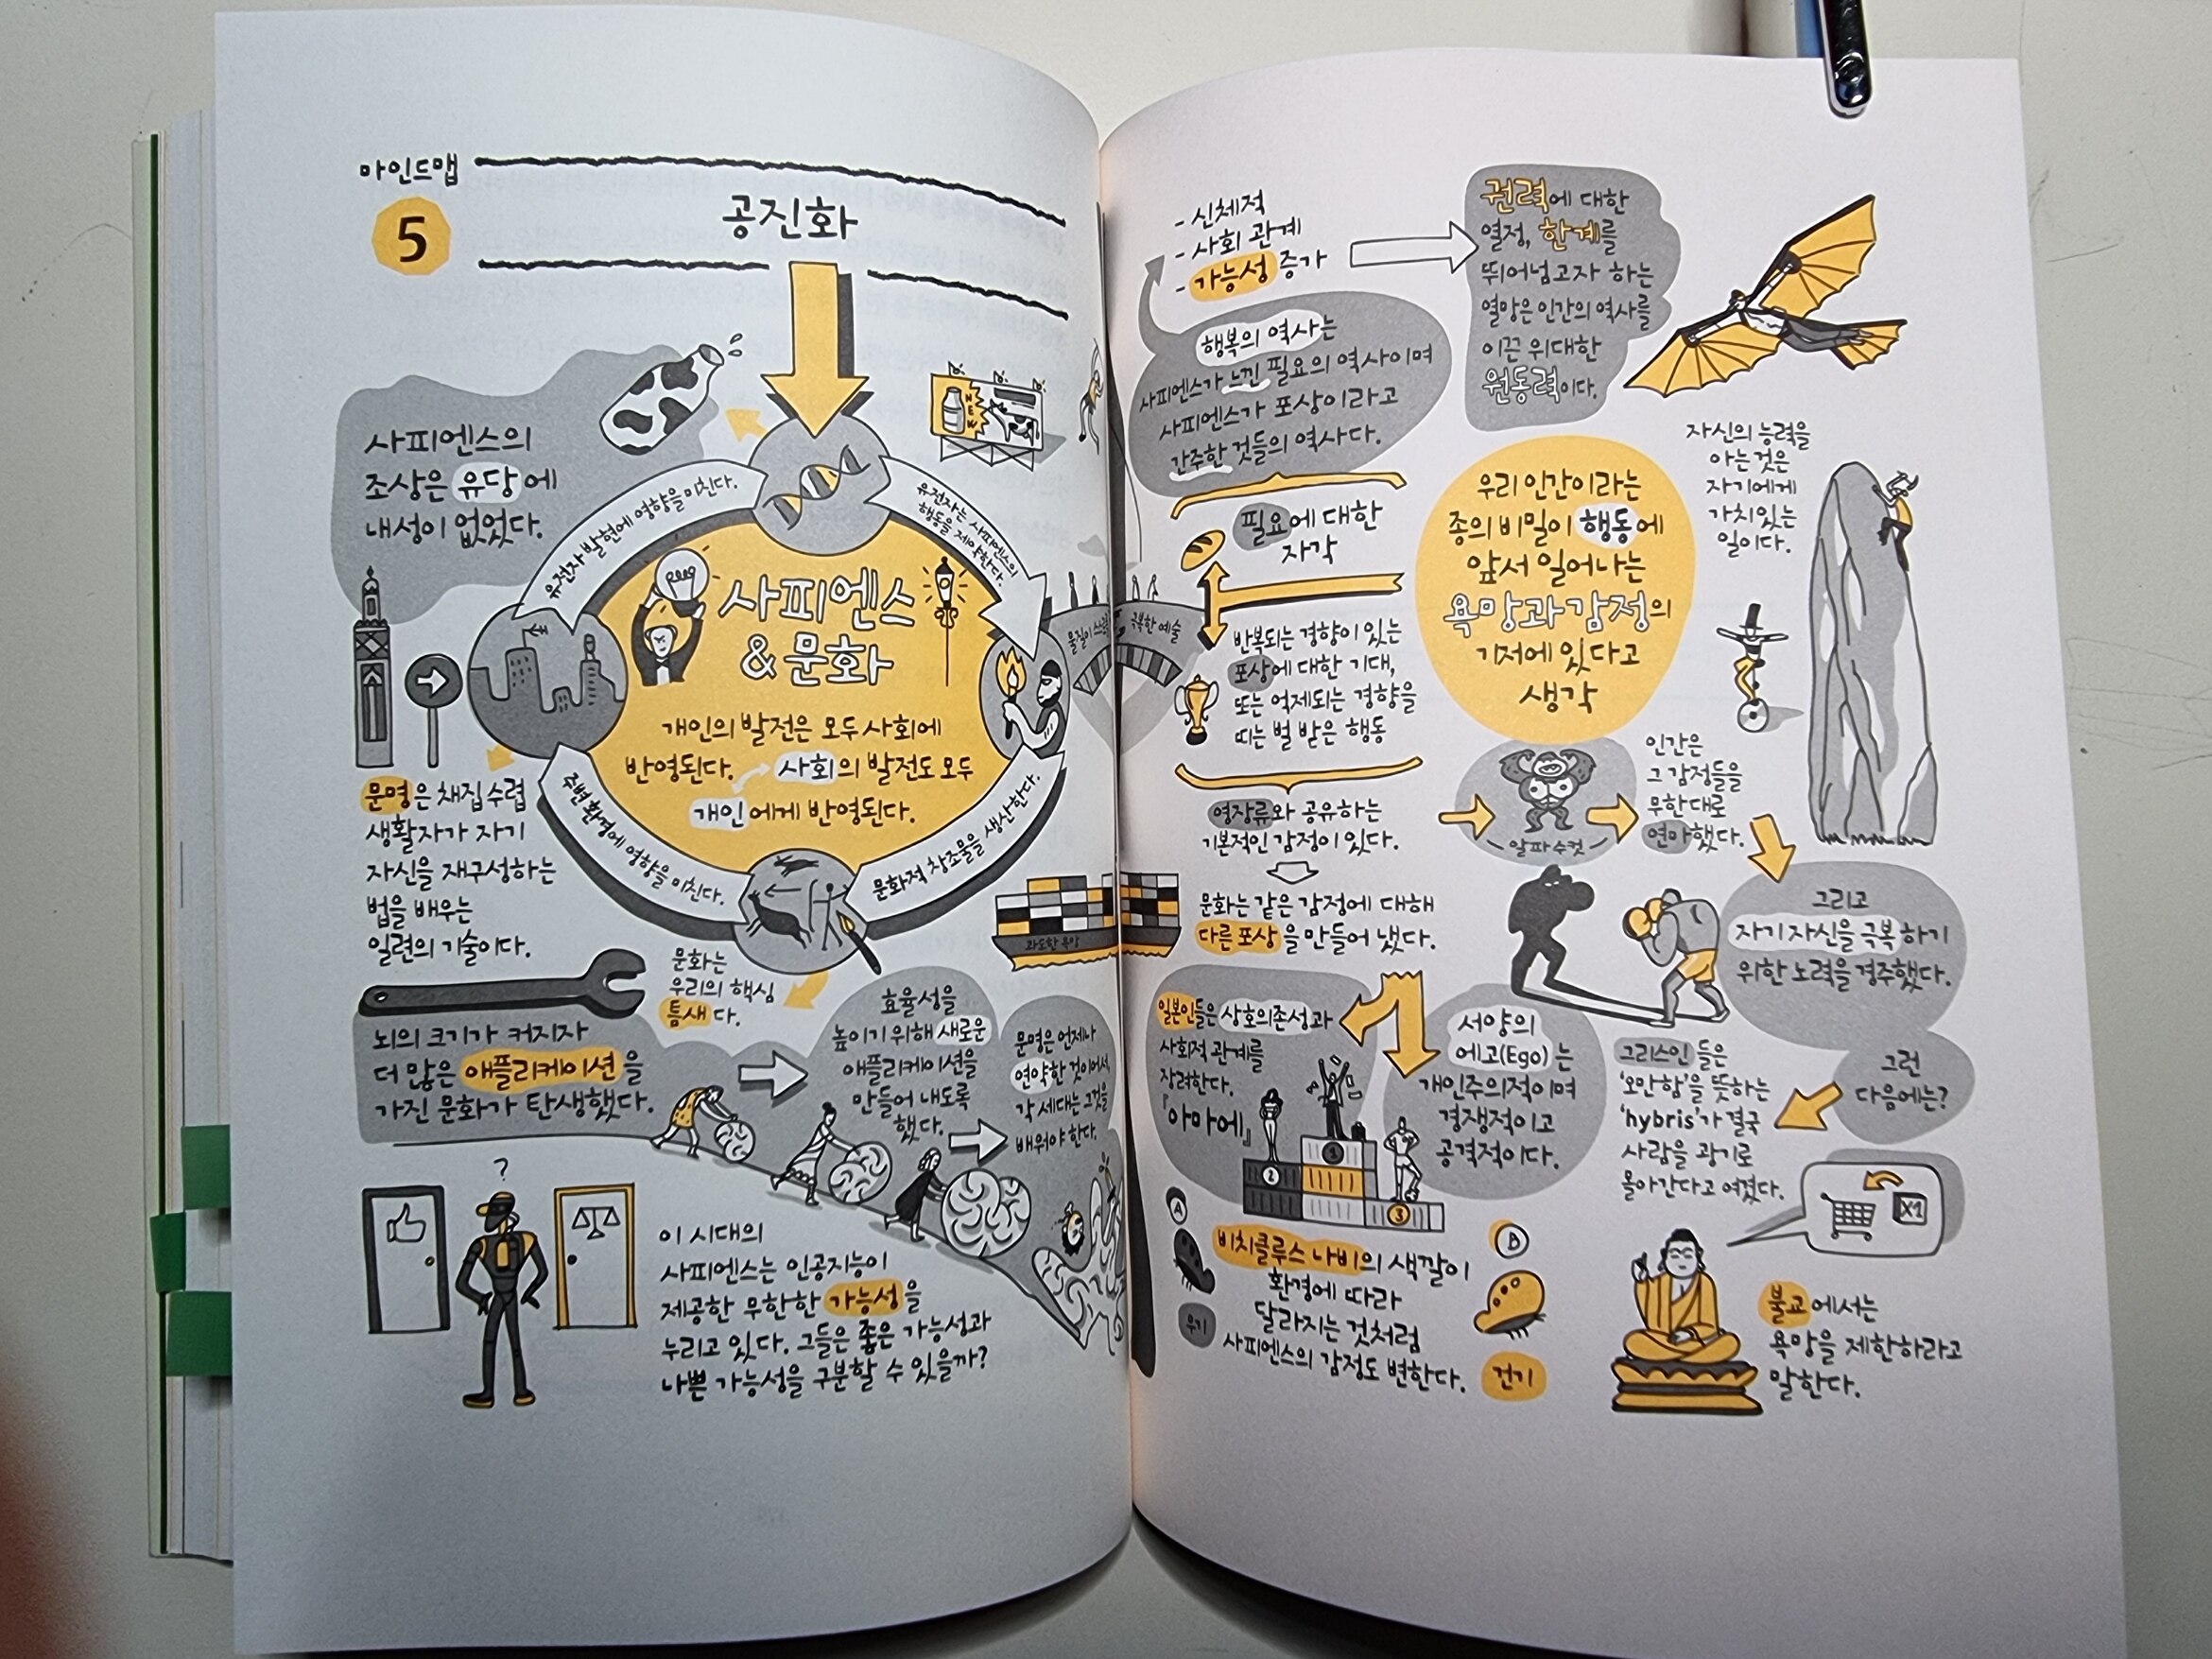 마인드맵
5
공진화
사피엔스의
조상은 유당에
내성이 없었다.
NEW
유전자 발현에 영향을 미친다.
유전자는 사피엔스의
행동을 제약한다.
사피엔스
& 문화
개인의 발전은 모두 사회에
반영된다. 사회의 발전도 모두
개인에게 반영된다.
주변 환경에 영향을 미친다.
문화적 창조물을 생산한다.
문명은 채집 수렵
생활자가 자기
자신을 재구성하는
법을 배우는
일련의 기술이다.
문화는
우리의 핵심
틈새다.
뇌의 크기가 커지자
더 많은 애플리케이션을
가진 문화가 탄생했다.
효율성을
높이기 위해 새로운
애플리케이션을
만들어 내도록
했다.
문명은 언제나
연약한 것이어서,
각 세대는 그것을
배워야 한다.
?
이 시대의
사피엔스는 인공지능이
제공한 무한한 가능성을
누리고 있다. 그들은 좋은 가능성과
나쁜 가능성을 구분할 수 있을까?
물질이
극복한 예술
과도한 욕망
- 신체적
- 사회 관계
- 가능성 증가
권력에 대한
열정, 한계를
뛰어넘고자 하는
열망은 인간의 역사를
이끈 위대한
원동력이다.
행복의 역사는
사피엔스가 느낀 필요의 역사이며
사피엔스가 포상이라고
간주한 것들의 역사다.
필요에 대한
자각
반복되는 경향이 있는
포상에 대한 기대,
또는 억제되는 경향을
띠는 벌 받은 행동
영장류와 공유하는
기본적인 감정이 있다.
문화는 같은 감정에 대해
다른 포상을 만들어 냈다.
우리 인간이라는
종의 비밀이 행동에
앞서 일어나는
욕망과 감정의
기저에 있다고
생각
자신의 능력을
아는 것은
자기에게
가치 있는
일이다.
알파 수컷
인간은
그 감정들을
무한대로
연마했다.
그리고
자기 자신을 극복하기
위한 노력을 경주했다.
일본인들은 상호의존성과
사회적 관계를
장려한다.
『아마에』
1
2
3
서양의
에고(Ego)는
개인주의적이며
경쟁적이고
공격적이다.
그런
다음에는?
그리스인들은
'오만함'을 뜻하는
'hybris'가 결국
사람을 광기로
몰아간다고 여겼다.
X1
A
우기
비치클루스 나비의 색깔이
환경에 따라
달라지는 것처럼
사피엔스의 감정도 변한다.
B
건기
불교에서는
욕망을 제한하라고
말한다.